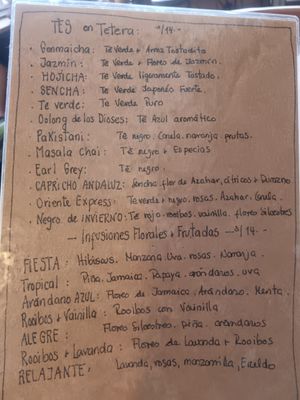 TÉS en Tetera: S/14.-
· Genmaicha: Té Verde + Arroz Tostadito
· Jazmín: Té Verde + Flores de Jazmín.
· HOJICHA: Té Verde ligeramente Tostado.
· SENCHA: Té Verde Japonés Fuerte.
· Te verde: Té Verde Puro
· Oolong de los Dioses: Té Azul aromático
· Pakistani: Té negro. Canela. naranja. frutas.
· Masala Chai: Té negro + Especias
· Earl Grey: Té negro.
· CAPRICHO ANDALUZ: Sencha, flor de Azahar, cítricos + Durazno
· Oriente Express: Té verde + negro. rosas. Azahar. Canela.
· Negro de INVIERNO: Té rojo. rooibos. vainilla. flores Silvestres
— Infusiones Florales + Frutadas — S/14.-
FIESTA: Hibiscus. Manzana. Uva. rosas. Naranja.
Tropical: Piña. Jamaica. Papaya. arándanos. uva
Arándano AZUL: Flores de Jamaica. Arándano. Menta.
Rooibos + Vainilla: Rooibos con Vainilla
ALEGRE: Flores Silvestres. piña. arándanos
Rooibos + Lavanda: Flores de Lavanda + Rooibos
RELAJANTE: Lavanda, rosas, manzanilla,